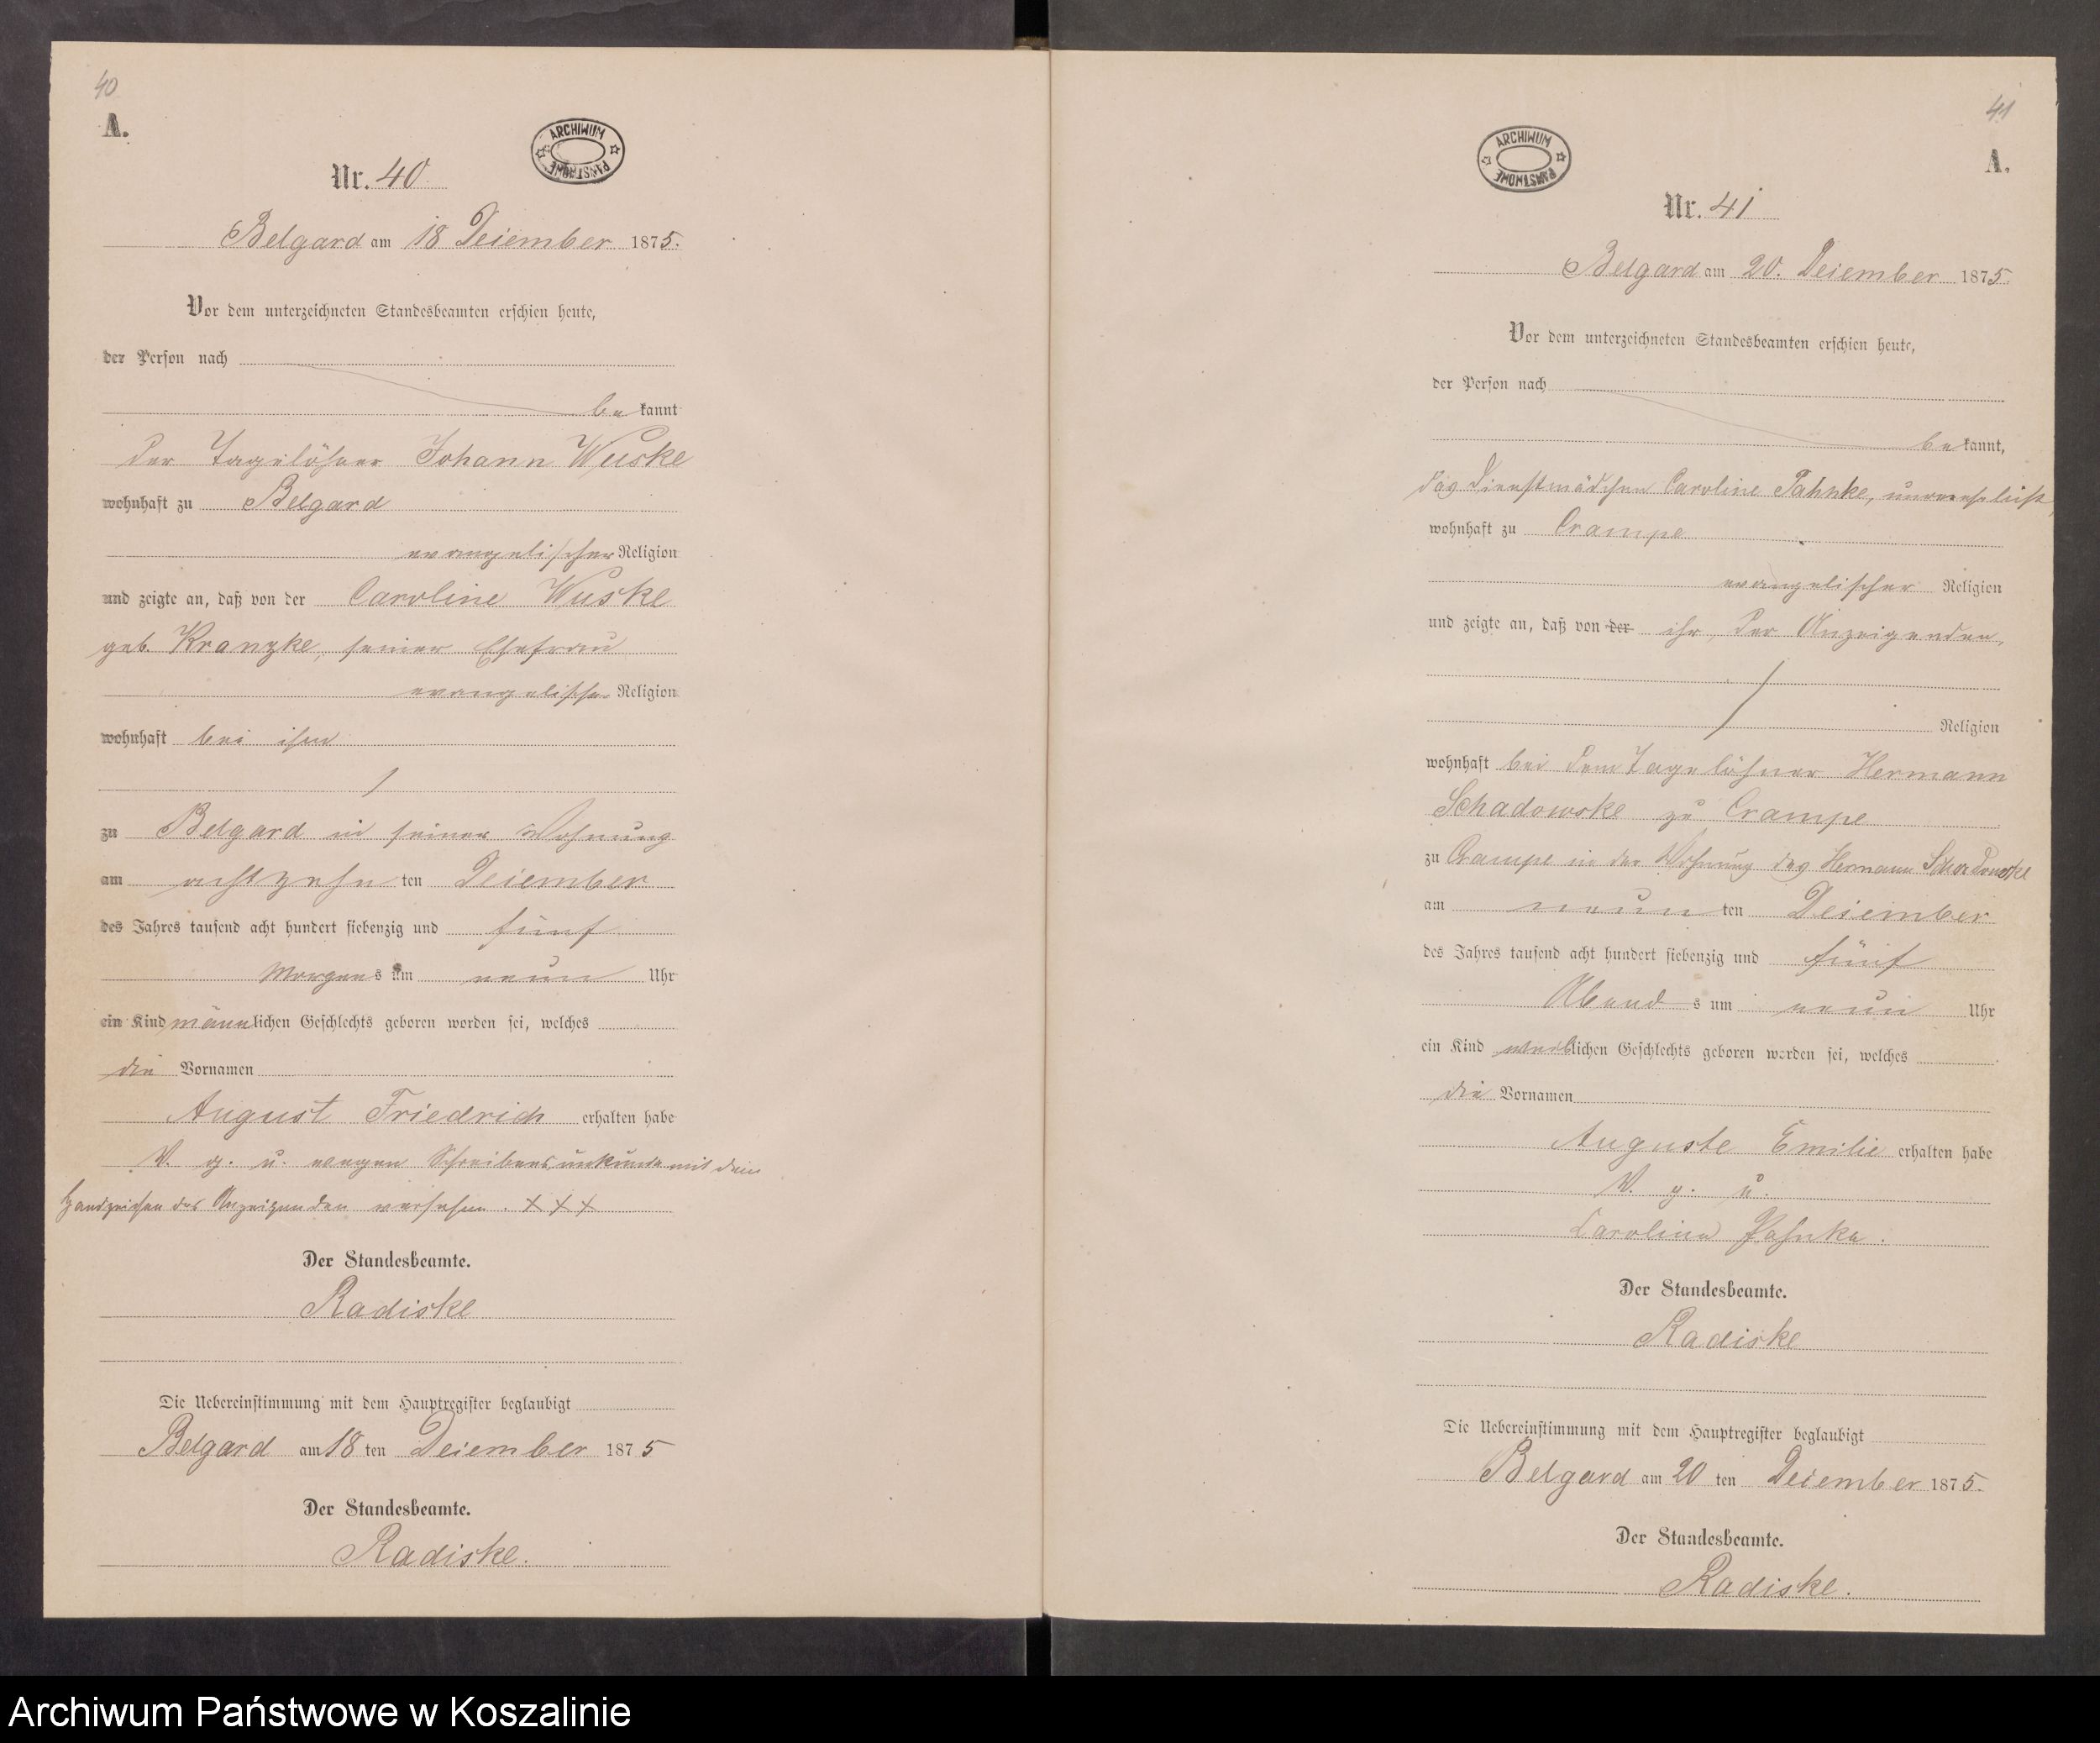 40
A.
ARCHIWUM PAŃSTWOWE
Nr. 40
Belgard am 18 Dezember 1875.
Vor dem unterzeichneten Standesbeamten erschien heute,
der Person nach
be kannt
der Tagelöhner Johann Wuske
wohnhaft zu Belgard
evangelischer Religion
und zeigte an, daß von der Caroline Wuske
geb. Kranzke, seiner Ehefrau
evangelischer Religion
wohnhaft bei ihm
zu Belgard in seiner Wohnung
am achtzehn ten Dezember
des Jahres tausend acht hundert siebenzig und fünf
Morgens um neun Uhr
ein Kind männlichen Geschlechts geboren worden sei, welches
die Vornamen
August Friedrich erhalten habe
V. g. u. wegen Schreibensunkunde mit dem
Handzeichen des Anzeigenden versehen. XXX
Der Standesbeamte.
Radiske
Die Uebereinstimmung mit dem Hauptregister beglaubigt
Belgard am 18 ten Dezember 1875
Der Standesbeamte.
Radiske.
41
A.
ARCHIWUM PAŃSTWOWE
Nr. 41
Belgard am 20. Dezember 1875.
Vor dem unterzeichneten Standesbeamten erschien heute,
der Person nach
be kannt,
das Dienstmädchen Caroline Pahnke, unverehelicht,
wohnhaft zu Crampe
evangelischer Religion
und zeigte an, daß von der ihr, der Anzeigenden,
Religion
wohnhaft bei dem Tagelöhner Hermann
Schadowske zu Crampe
zu Crampe in der Wohnung des Hermann Schadowske
am neun ten Dezember
des Jahres tausend acht hundert siebenzig und fünf
Abend s um neun Uhr
ein Kind weiblichen Geschlechts geboren worden sei, welches
die Vornamen
Auguste Emilie erhalten habe
V. g. u.
Caroline Pahnke.
Der Standesbeamte.
Radiske
Die Uebereinstimmung mit dem Hauptregister beglaubigt
Belgard am 20 ten Dezember 1875.
Der Standesbeamte.
Radiske.
Archiwum Państwowe w Koszalinie